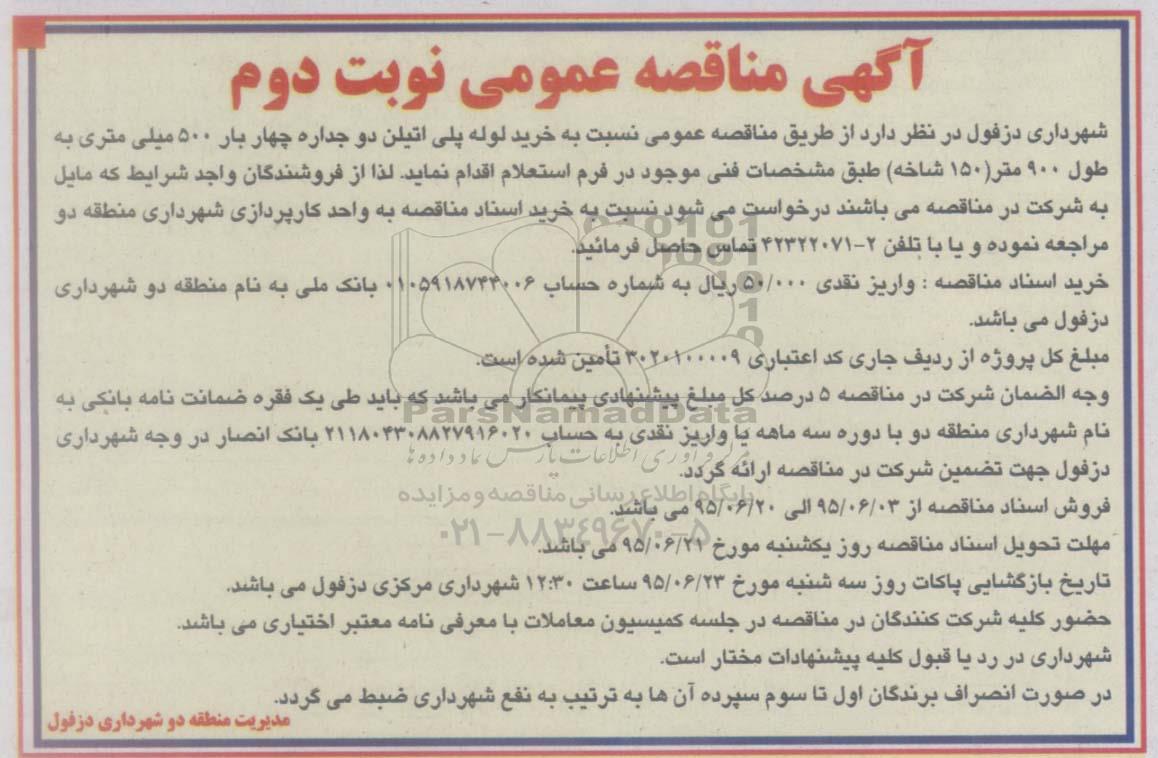 آگهی مناقصه عمومی نوبت دوم
شهرداری دزفول در نظر دارد از طریق مناقصه عمومی نسبت به خرید لوله پلی اتیلن دو جداره چهار بار ۵۰۰ میلی متری به
طول ۹۰۰ متر(۱۵۰ شاخه) طبق مشخصات فنی موجود در فرم استعلام اقدام نماید. لذا از فروشندگان واجد شرایط که مایل
به شرکت در مناقصه می باشند درخواست می شود نسبت به خرید اسناد مناقصه به واحد کارپردازی شهرداری منطقه دو
مراجعه نموده و یا با تلفن ۲-۴۲۳۲۲۰۷۱ تماس حاصل فرمائید.
خرید اسناد مناقصه : واریز نقدی ۵۰/۰۰۰ ریال به شماره حساب ۰۱۰۵۹۱۸۷۴۴۰۰۶ بانک ملی به نام منطقه دو شهرداری
دزفول می باشد.
مبلغ کل پروژه از ردیف جاری کد اعتباری ۳۰۲۰۱۰۰۰۰۹ تأمین شده است.
وجه الضمان شرکت در مناقصه ۵ درصد کل مبلغ پیشنهادی پیمانکار می باشد که باید طی یک فقره ضمانت نامه بانکی به
نام شهرداری منطقه دو با دوره سه ماهه یا واریز نقدی به حساب ۲۱۱۸۰۴۳۰۸۸۲۷۹۱۶۰۲۰ بانک انصار در وجه شهرداری
دزفول جهت تضمین شرکت در مناقصه ارائه گردد.
فروش اسناد مناقصه از ۹۵/۰۶/۰۳ الی ۹۵/۰۶/۲۰ می باشد.
مهلت تحویل اسناد مناقصه روز یکشنبه مورخ ۹۵/۰۶/۲۱ می باشد.
تاریخ بازگشایی پاکات روز سه شنبه مورخ ۹۵/۰۶/۲۳ ساعت ۱۲:۳۰ شهرداری مرکزی دزفول می باشد.
حضور کلیه شرکت کنندگان در مناقصه در جلسه کمیسیون معاملات با معرفی نامه معتبر اختیاری می باشد.
شهرداری در رد یا قبول کلیه پیشنهادات مختار است.
در صورت انصراف برندگان اول تا سوم سپرده آن ها به ترتیب به نفع شهرداری ضبط می گردد.
مدیریت منطقه دو شهرداری دزفول
ParsNamadData
مرکز فرآوری اطلاعات پارس نماد داده ها
پایگاه اطلاع رسانی مناقصه و مزایده
۰۲۱-۸۸۳۴۹۶۷۰-۵